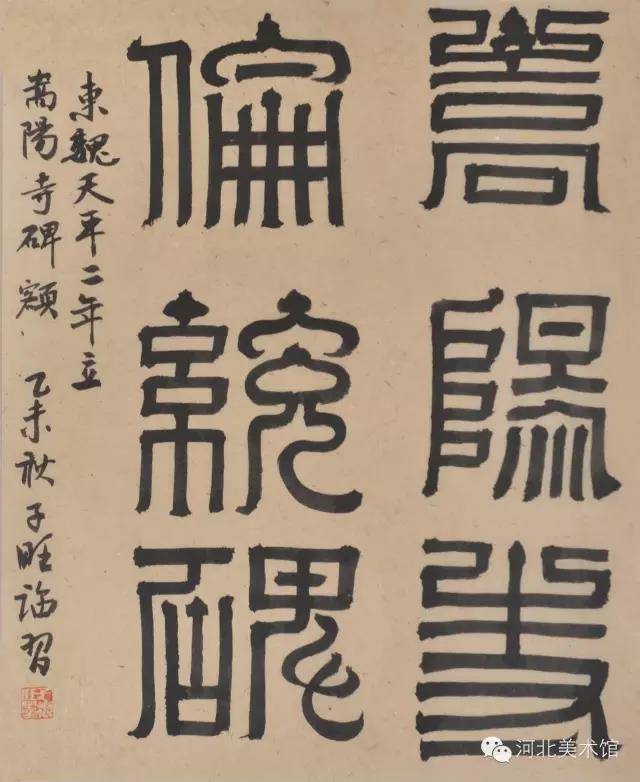 嵩陽寺
倫統碑
東魏天平二年立
嵩陽寺碑額 乙未秋子旺臨習
河北美术馆